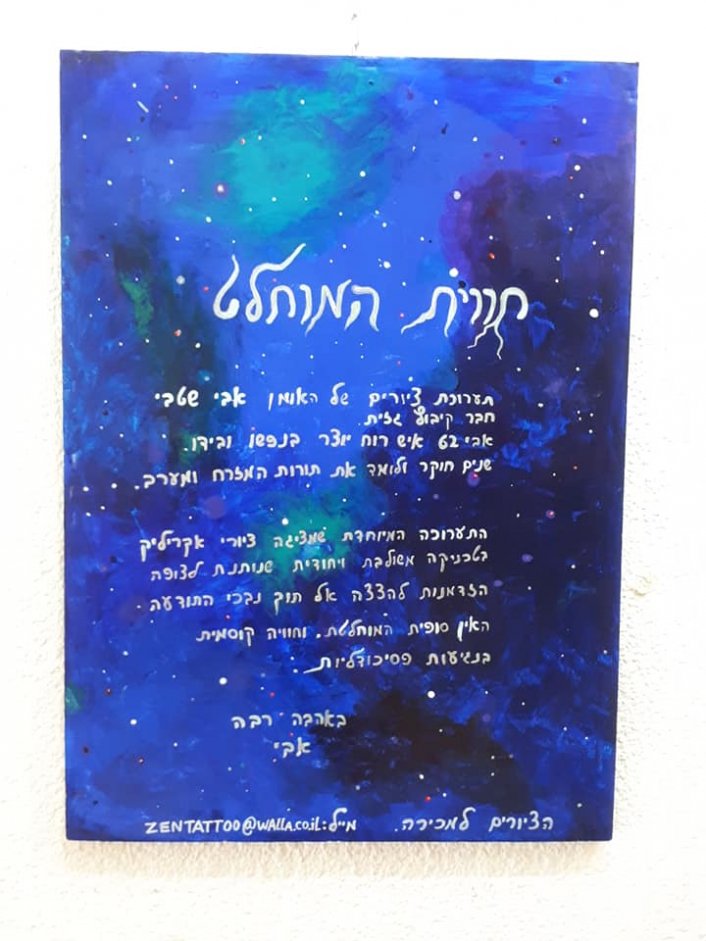 חווית המוחלט
תערוכת ציורים של האומן אבי שטבי
חבר קיבוץ גזית.
אבי 62 איש רוח יוצר בנפשו ובידו.
שנים חוקר ולומד את תורות המזרח ומערב.
התערוכה המיוחדת שמציגה ציורי אקריליק
בטכניקה משולבת ויחודית שנותנת לצופה
הזדמנות להצצה אל תוך נבכי התודעה
האין סופית המוחלטת. וחוויה קוסמית
בנגיעות פסיכודליות.
באהבה רבה
אבי
הציורים למכירה. מייל: ZENTATTOO@WALLA.CO.IL